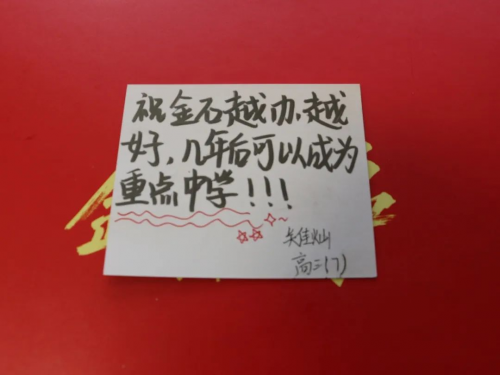 祝金石越办越
好,几年后可以成为
重点中学!!!
佳灿
高二(7)